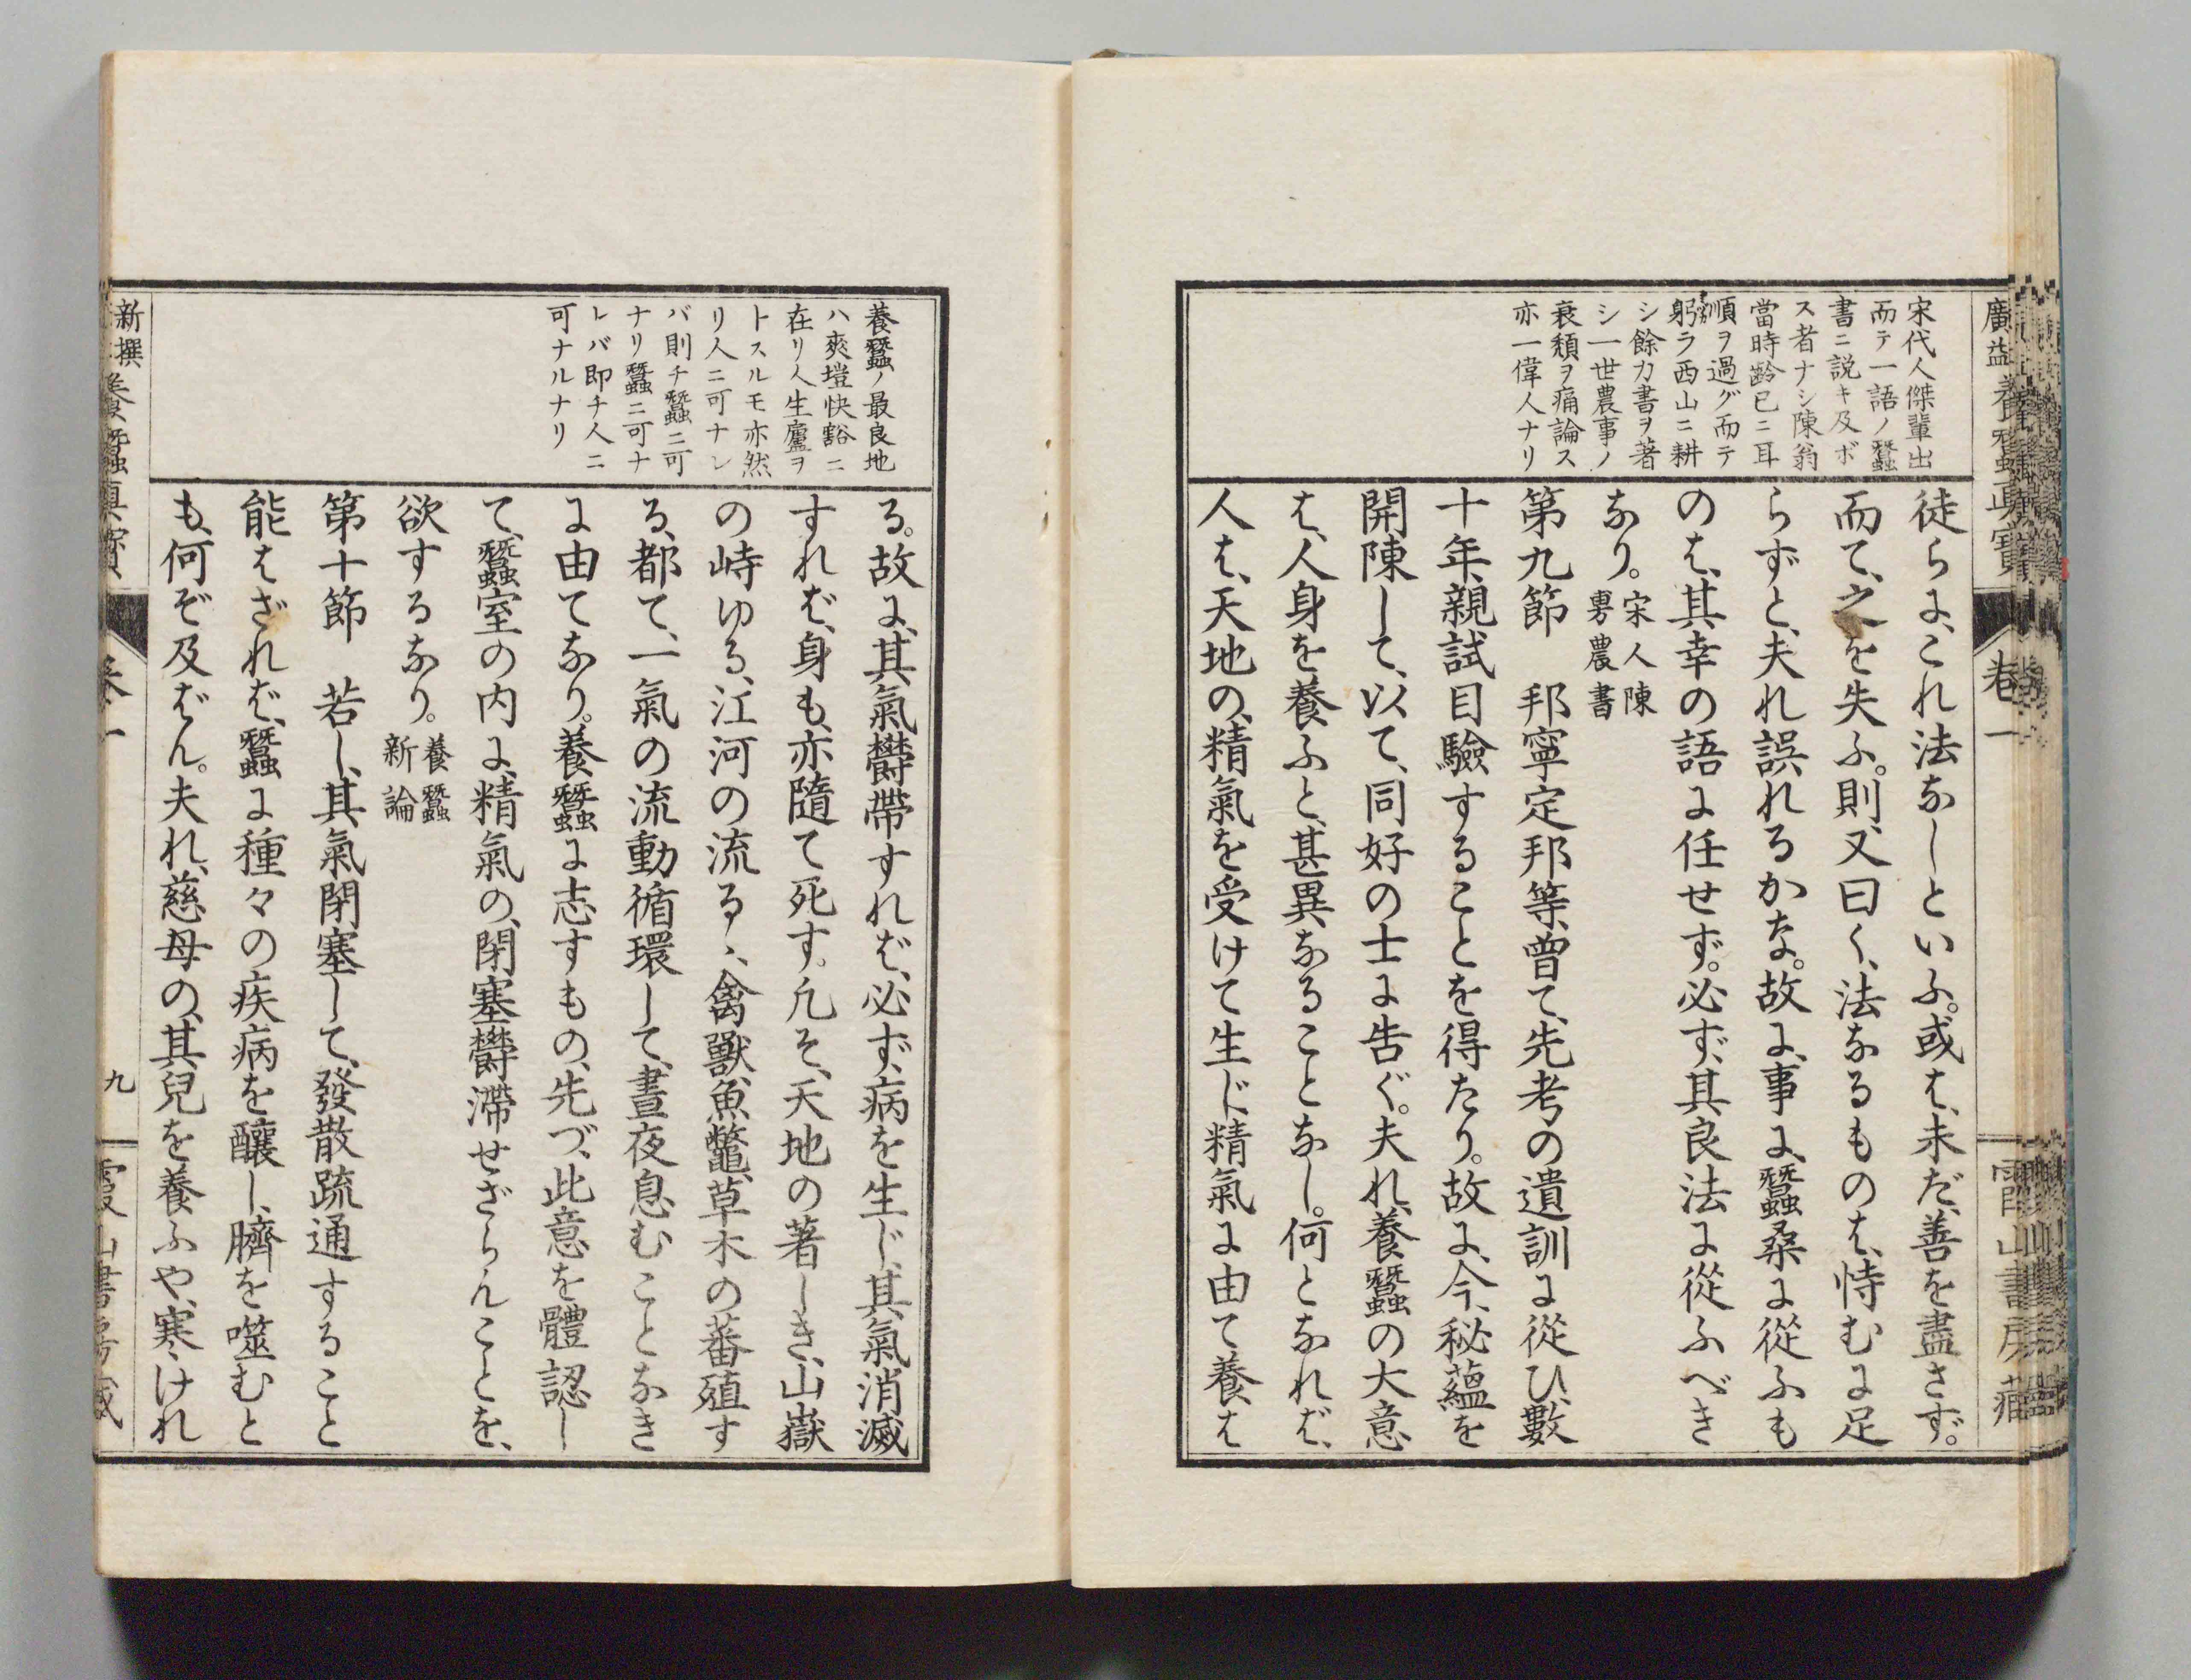 廣益養蠶眞寶 卷一 霞山書房藏
宋代人傑輩出
而テ一語ノ蠶
書ニ説キ及ボ
ス者ナシ陳翁
當時齡已ニ耳
順ヲ過グ而テ
躬ラ西山ニ耕
シ餘力書ヲ著
シ一世農事ノ
衰頽ヲ痛論ス
亦一偉人ナリ
徒らに、これ法なしといふ。或は、未だ、善を盡さず。
而て、之を失ふ。則、又曰く、法なるものは、恃むに足
らずと、夫れ誤れるかな。故に、事に、蠶桑に從ふも
のは、其幸の語に任せず。必ず、其良法に從ふべき
なり。宋人陳
旉農書
第九節 邦寧定邦等、曾て、先考の遺訓に從ひ、數
十年、親試目驗することを得たり。故に、今、秘蘊を
開陳して、以て、同好の士に告ぐ。夫れ、養蠶の大意
は、人身を養ふと、甚異なることなし。何となれば、
人は、天地の、精氣を受けて生じ、精氣に由て養は
養蠶ノ最良地
ハ爽塏快豁ニ
在リ人生廬ヲ
トスルモ亦然
リ人ニ可ナレ
バ則チ蠶ニ可
ナリ蠶ニ可ナ
レバ即チ人ニ
可ナルナリ
る。故に、其氣欝帶すれば、必ず、病を生じ、其氣消滅
すれば、身も、亦隨て死す。凡そ、天地の著しき、山嶽
の峙ゆる、江河の流るゝ、禽獸、魚鼈、草木の蕃殖す
る、都て、一氣の流動循環して、晝夜息むことなき
に由てなり。養蠶に志すもの、先づ、此意を體認し
て、蠶室の内に、精氣の、閉塞欝滯せざらんことを、
欲するなり。養蠶
新論
第十節 若し、其氣閉塞して、發散疏通すること
能はざれば、蠶に種々の疾病を釀し、臍を噬むと
も、何ぞ及ばん。夫れ、慈母の、其兒を養ふや、寒けれ
新撰養蠶眞寶 卷一 九 霞山書房藏